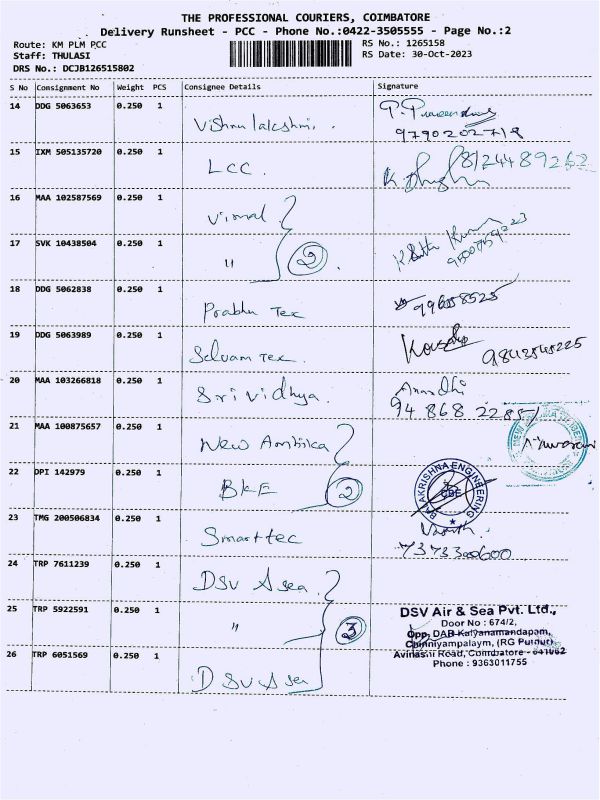 THE PROFESSIONAL COURIERS, COIMBATORE
Delivery Runsheet - PCC - Phone No.:0422-3505555 - Page No.:2
Route: KM PLM PCC
RS No.: 1265158
Staff: THULASI
RS Date: 30-Oct-2023
DRS No.: DCJB126515802
S No Consignment No Weight PCS Consignee Details Signature
14 DDG 5063653 0.250 1 Vishnu lakshmi.
9790202718
15 IXM 505135720 0.250 1 LCC. 8124489262
16 MAA 102587569 0.250 1 Vimal
17 SVK 10438504 0.250 1 " 2
18 DDG 5062838 0.250 1 Prabhu Tex
19 DDG 5063989 0.250 1 Selvam Tex. 9843545225
20 MAA 103266818 0.250 1 Srividhya. Anandhi
94 868 22857
21 MAA 100875657 0.250 1 New Ambika
22 DPI 142979 0.250 1 BKE 2
BALAKRISHNA ENGINEERING
CBE
23 TMG 200506834 0.250 1 Smarttec
7373300600
24 TRP 7611239 0.250 1 DSV Asea
25 TRP 5922591 0.250 1 " 3
26 TRP 6051569 0.250 1 DSV Asea
DSV Air & Sea Pvt. Ltd.,
Door No : 674/2,
Opp. DAB Kalyanamandapam,
Chinniyampalaym, (RG Pudur)
Avinashi Road, Coimbatore - 641062
Phone : 9363011755